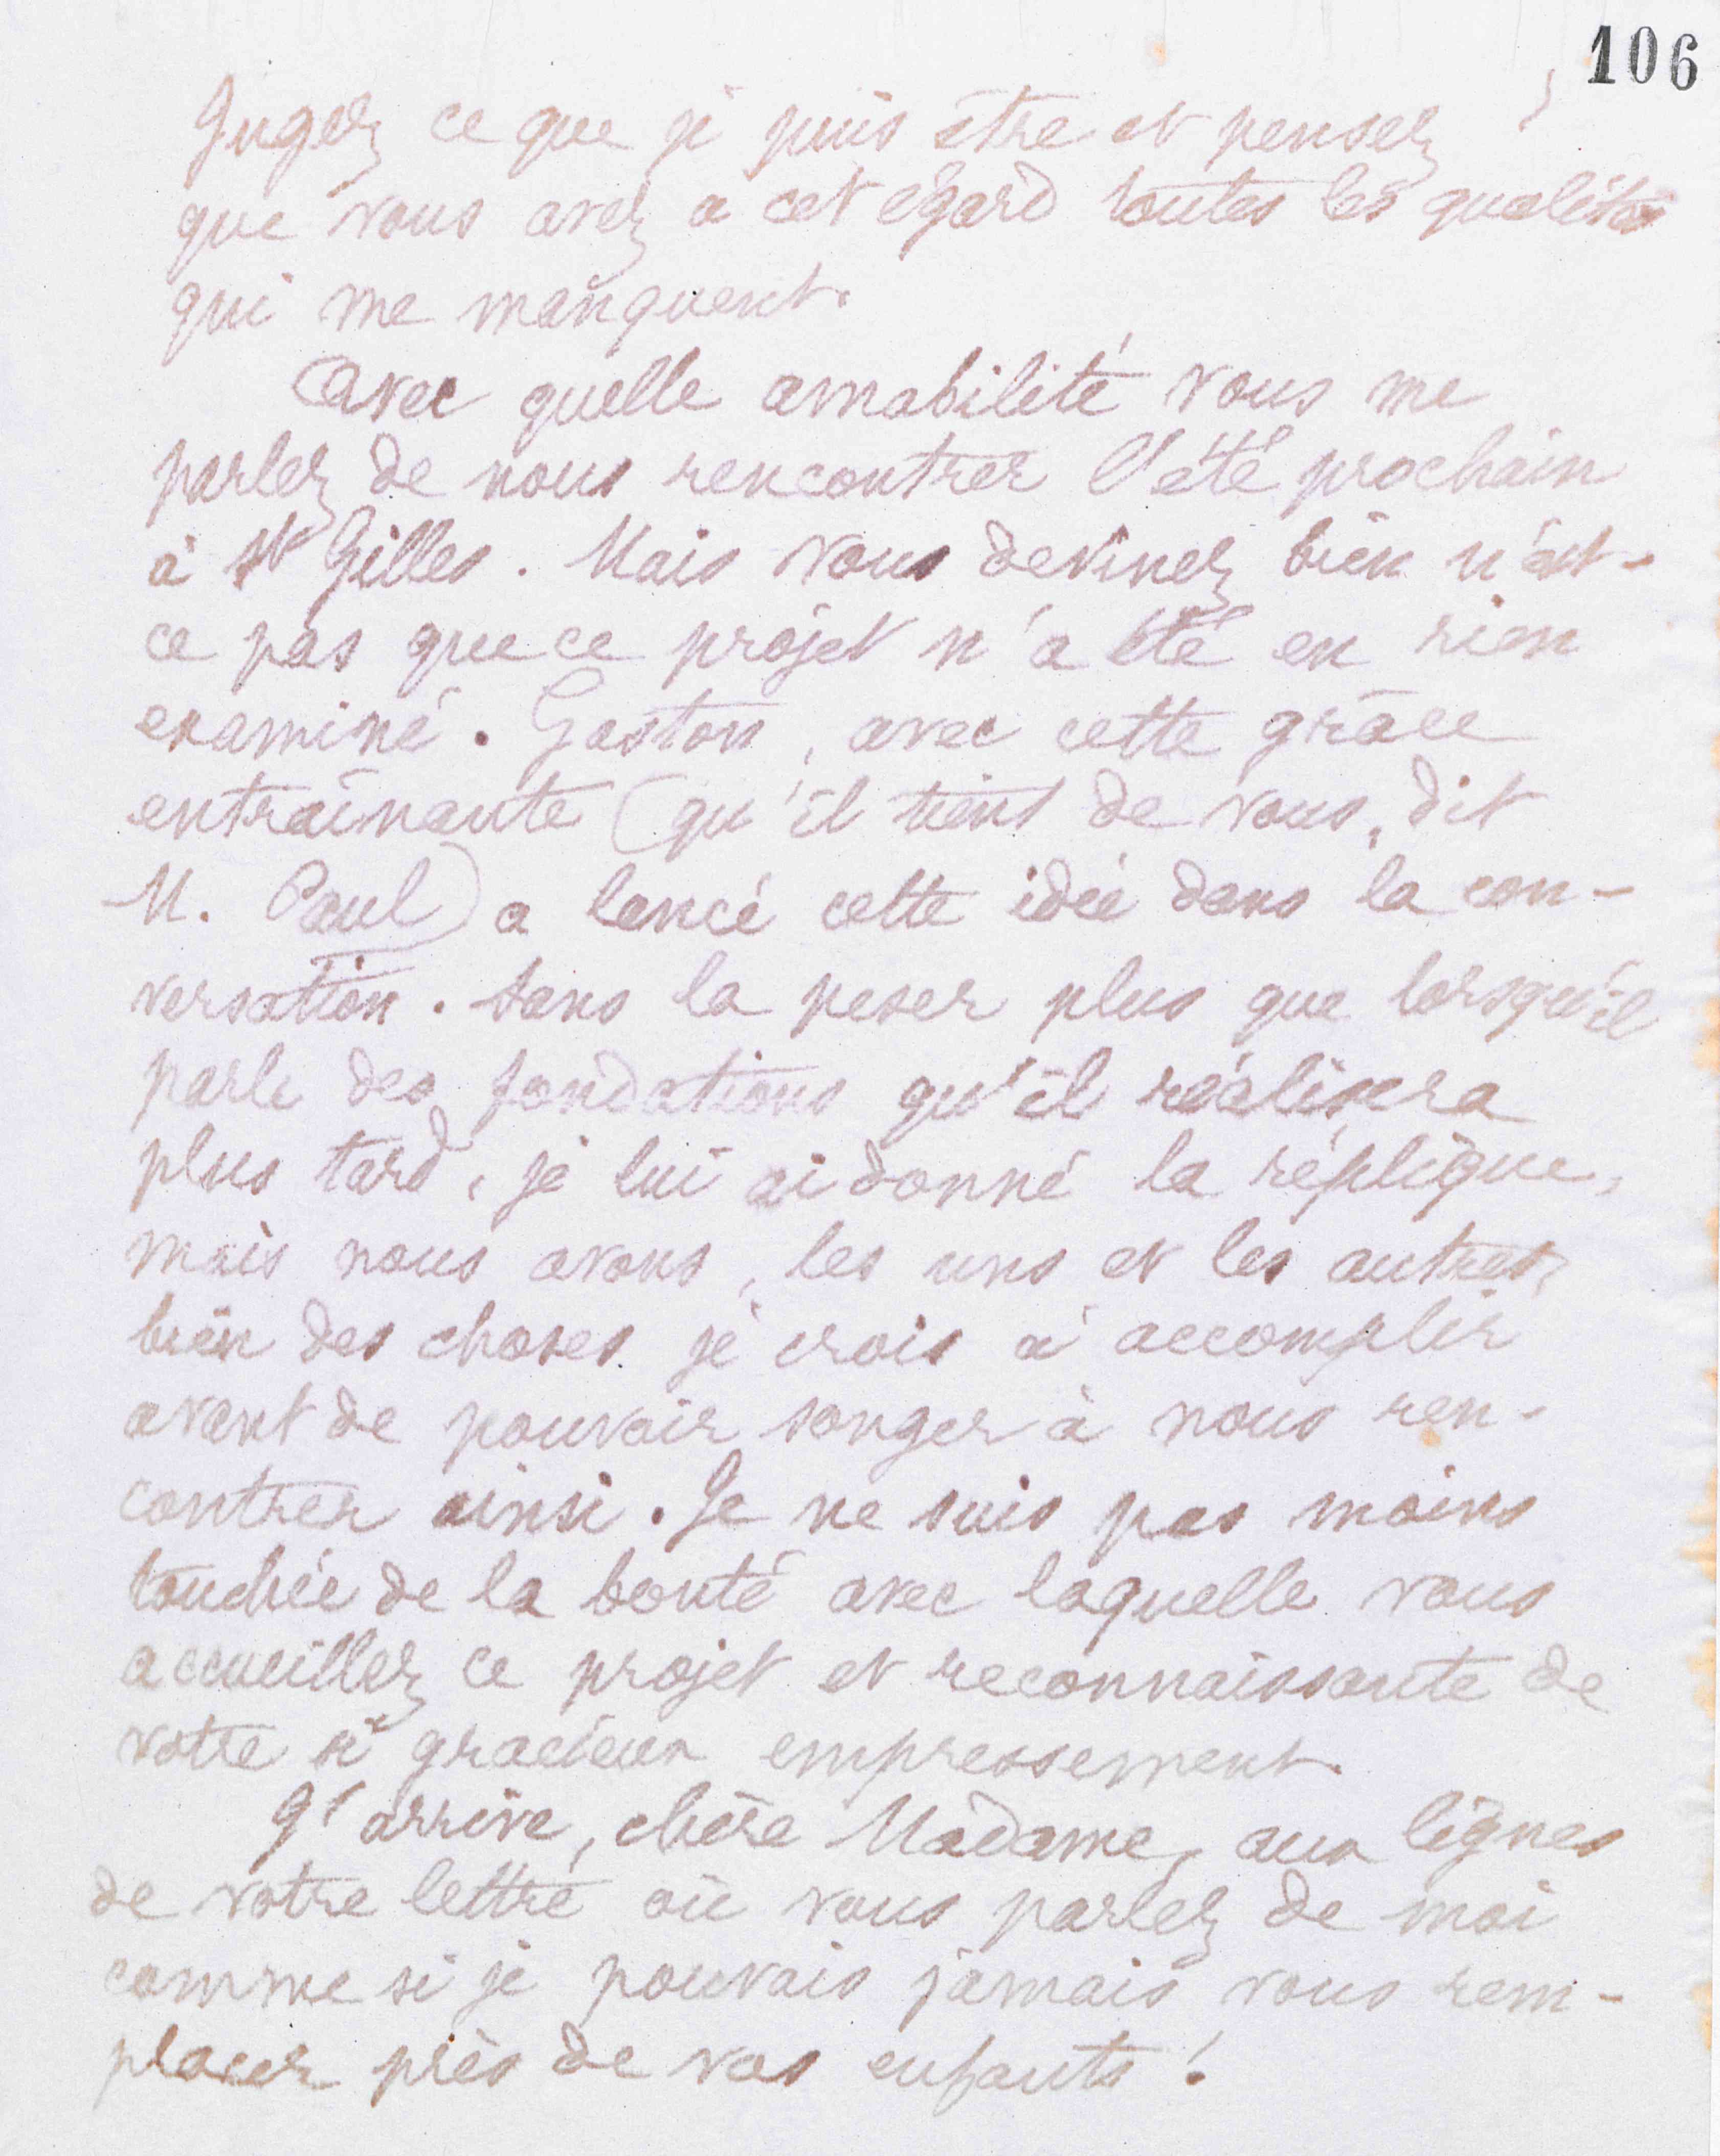 106
Jugez ce que je puis être et pensez
que vous avez a cet égard toutes les qualités
qui me manquent.
Avec quelle amabilité vous me
parlez de nous rencontrer l'été prochain
à St Gilles. Mais vous devinez bien n'est-
ce pas que ce projet n'a été en rien
examiné. Gaston, avec cette grâce
entraînante (qu'il tient de vous, dit
M. Paul) a lancé cette idée dans la con-
versation. Sans la peser plus que lorsqu'il
parle des fondations qu'il réalisera
plus tard, je lui ai donné la réplique,
mais nous avons, les uns et les autres,
bien des choses je crois à accomplir
avant de pouvoir songer à nous ren-
contrer ainsi. Je ne suis pas moins
touchée de la bonté avec laquelle vous
accueillez ce projet et reconnaissante de
votre si gracieux empressement.
J'arrive, chère Madame, aux lignes
de votre lettre où vous parlez de moi
comme si je pouvais jamais vous rem-
placer près de vos enfants !